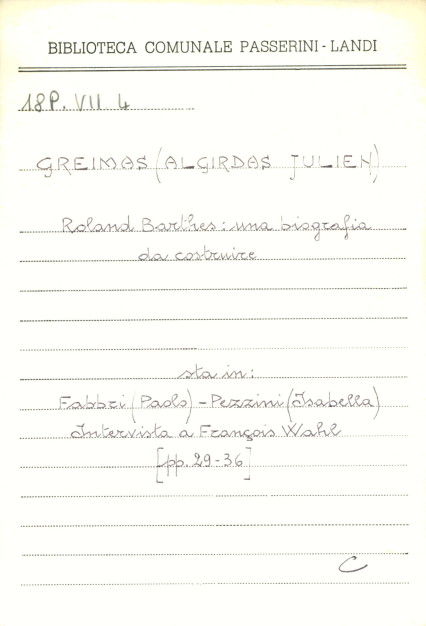 BIBLIOTECA COMUNALE PASSERINI - LANDI
18P. VII 4
GREIMAS (ALGIRDAS JULIEN)
Roland Barthes: una biografia
da costruire
sta in:
Fabbri (Paolo) - Pezzini (Isabella)
Intervista a François Wahl
[pp. 29-36]
C